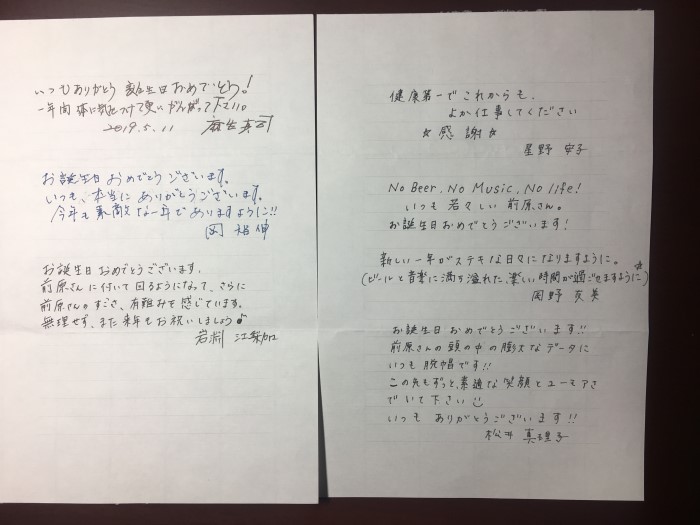 いつもありがとう 誕生日おめでとう!
一年間 体に気をつけて 頑張って下さい。
2019.5.11 麻生真司
お誕生日おめでとうございます。
いつも、本当にありがとうございます。
今年も素敵な一年でありますように!!
岡 裕伸
お誕生日おめでとうございます。
前原さんに付いて回るようになって、さらに
前原さんのすごさ、有難みを感じています。
無理せず、また来年もお祝いしましょう♪
岩渕 江梨加
健康第一で これからも、
よか仕事してください
☆感謝☆
星野 幸子
No Beer, No Music, No life!
いつも 若々しい 前原さん。
お誕生日おめでとうございます!
新しい一年がステキな日々になりますように。
(ビールと音楽に満ち溢れた、楽しい時間が過ごせますように☆)
岡野 友美
お誕生日おめでとうございます!!
前原さんの頭の中の膨大なデータに
いつも脱帽です!!
この先もずっと、素適な笑顔とユーモアさ
でいて下さい
いつも ありがとうございます!!
松井 真理子